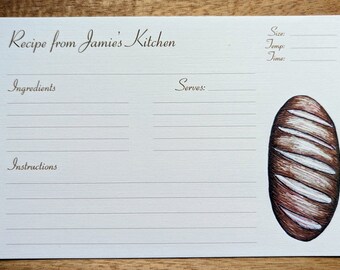 Recipe from Jamie's Kitchen
Size:
Temp:
Time:
Ingredients
Serves:
Instructions